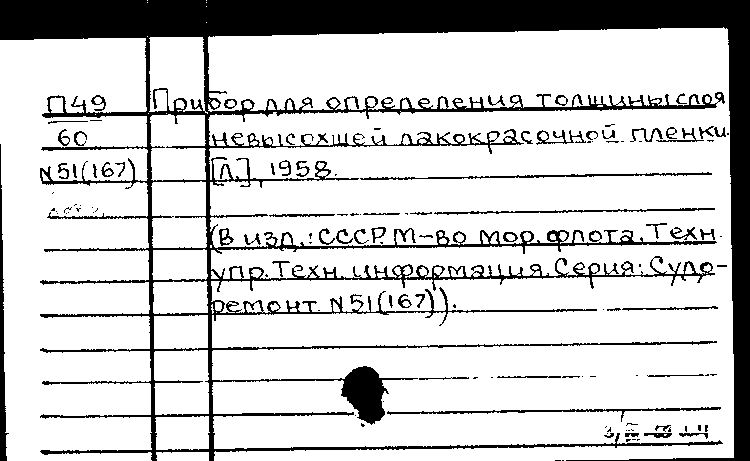 П49 Прибор для определения толщины слоя
60 невысохшей лакокрасочной пленки.
N51(167) [Л.], 1958.
(В изд.: СССР. М-во мор. флота. Техн.
упр. Техн. информация. Серия: Судо-
ремонт. N51(167)).